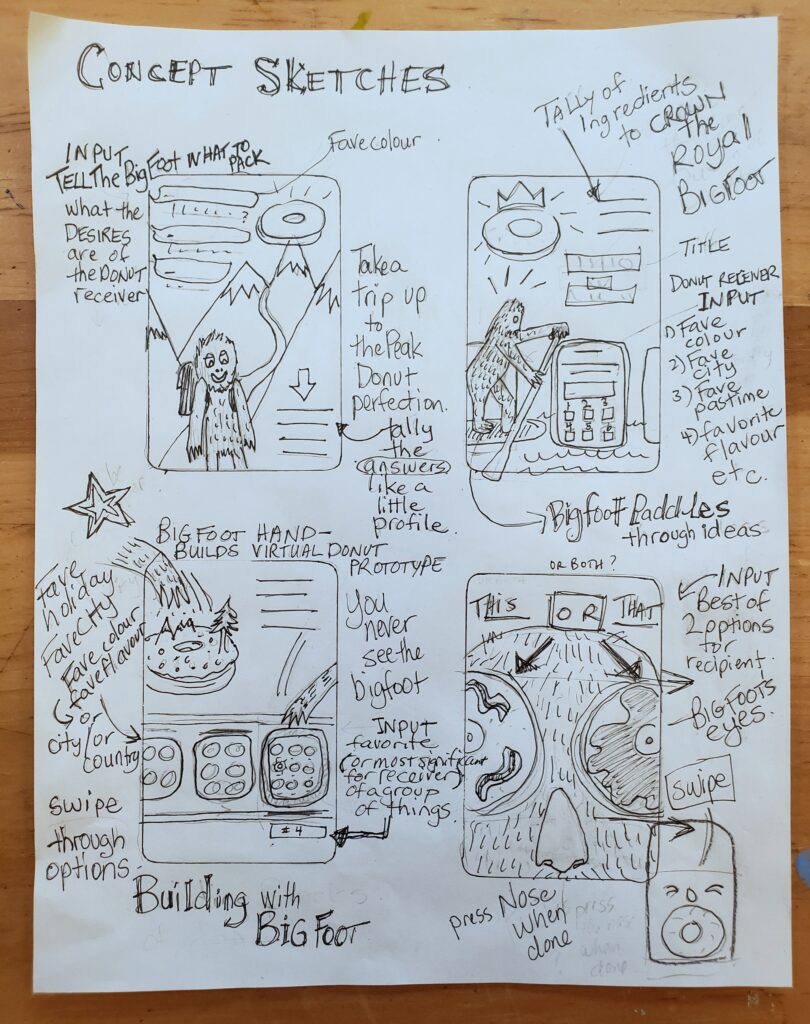 CONCEPT SKETCHES
INPUT
TELL The BigFoot WHAT TO PACK
what the
DESIRES
are of
the DONUT
receiver
Fave colour
?
Take a
trip up
to
the Peak
Donut
perfection.
tally
the
answers
like a
little
profile.
TALLY of
Ingredients
to CROWN
the
ROYAl
BIGFOOT
TITLE
DONUT RECEIVER
INPUT
1) Fave
colour
2) Fave
city
3) Fave
pastime
4) favorite
flavour
etc.
1 2 3
4 5 6
Bigfoot Paddles
through ideas
BIGFOOT HAND-
BUILDS VIRTUAL DONUT
PROTOTYPE
Fave
holiday
Fave City
Fave colour
fave flavour
or
city/or
country
swipe
through
options.
You
never
see the
bigfoot
INPUT
favorite
(or most significant
for receiver)
of a group
of things.
#4
Building with
BIGFOOT
OR BOTH?
THIS OR THAT
INPUT
Best of
2 options
for
recipient.
BIGFOOTS
eyes.
swipe
press Nose
when
done
press
when
done